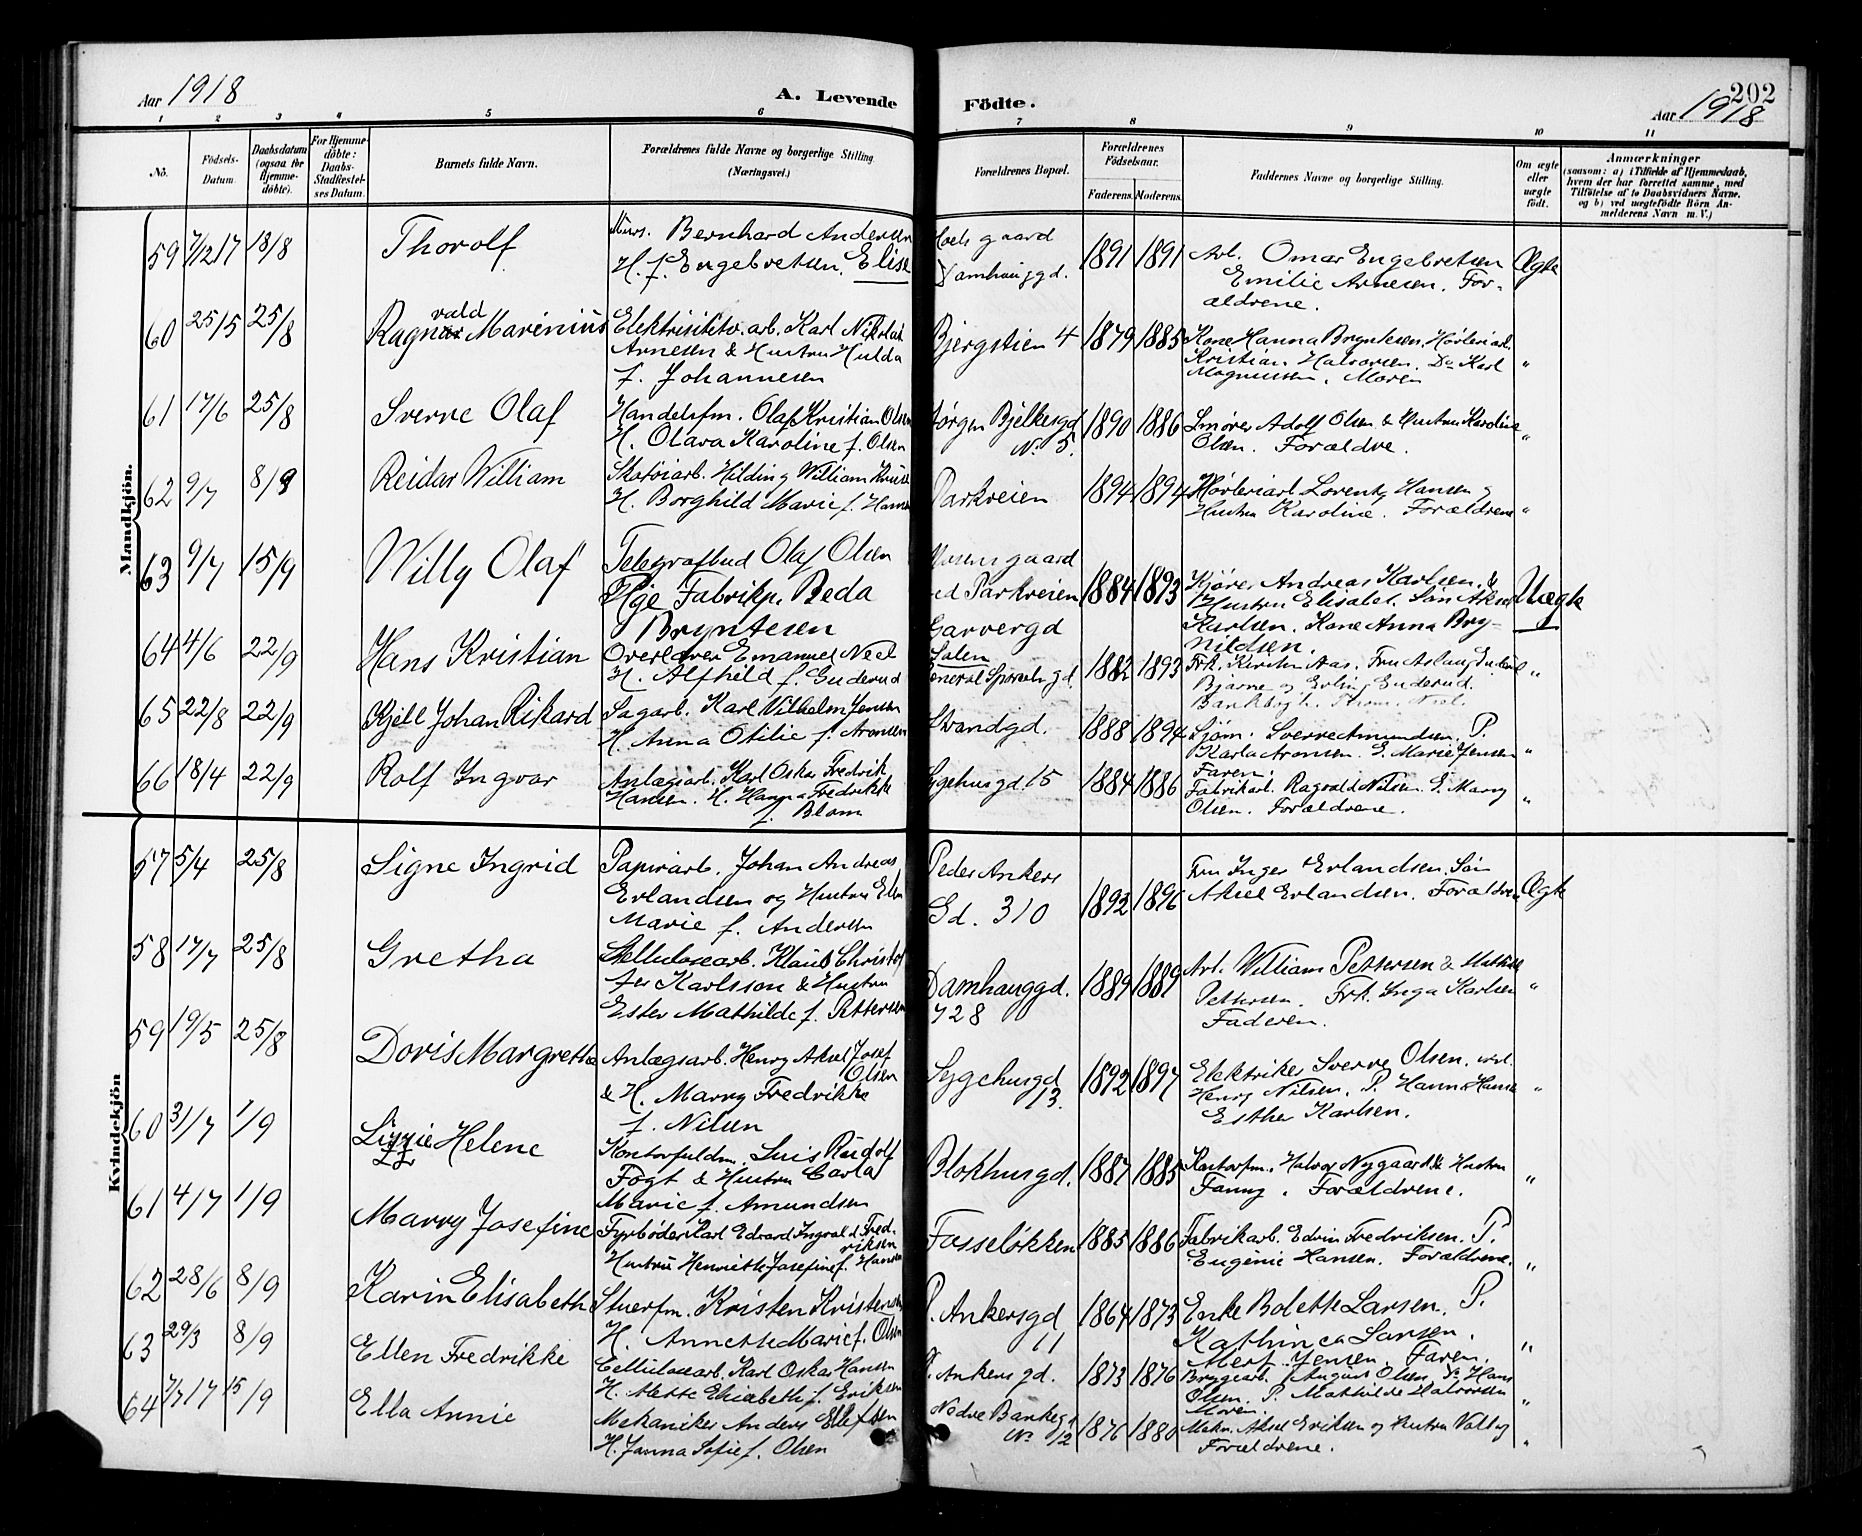 Aar 1918
A. Levende
Födte.
202
Aar 1918
1 2 3 4 5 6 7 8 9 10 11
No.
Födsels-
Datum.
Daabsdatum
(ogsaa for
Hjemme-
döbte).
For Hjemme-
döbte:
Daabs-
Stadfæstel-
ses Datum.
Barnets fulde Navn.
Forældrenes fulde Navne og borgerlige Stilling
(Næringsvei.)
Forældrenes Bopæl.
Forældrenes
Födselsaar.
Faderens. Moderens.
Faddernes Navne og borgerlige Stilling.
Om ægte
eller
uægte
födt.
Anmærkninger
(saasom: a) i Tilfælde af Hjemmedaab,
hvem der har forrettet samme, med
Tilföielse af to Daabsvidners Navne,
og b) ved uægtefödte Börn An-
melderens Navn m. V.)
Mandkjön.
59 7/12 17 18/8 Thorolf
Bernhard Andersen
H. f. Engebretsen. Elise
gaard
Damhauggd.
1891 1891
Arb. Omar Engebretsen
Emilie Arnesen. For-
ældrene.
Ægte
60 25/5 25/8 Ragnvald Marinius
Elektrisitetv. arb. Karl Nikolai
Arnesen & Hustru Hulda
f. Johannesen
Bjergstien 4
1879 1885
Kone Hanna Bryntesen. Høvleriarb.
Kristian Halvorsen. Do Karl
Magnussen. Moren
"
61 17/6 25/8 Sverre Olaf
Handelsfm. Olaf Kristian Olsen
H. Olava Karoline f. Olsen
Jörgen Bjelkesgd
No. 5.
1890 1886
Smører Adolf Olsen & Hustru Karoline
Olsen. Forældre.
"
62 9/7 8/9 Reidar William
Skotøiarb. Hilding William
H. Borghild Marie f. Hansen
Parkveien
1894 1894
Høvleriarb Lorentz Hansen og
Hustru Karoline. Forældrene
"
63 9/7 15/9 Willy Olaf
Telegrafbud Olaf Olsen
Pige Fabrikp. Beda
Bryntesen
Mosengaard
ved Parkveien
1884 1893
Kjører Andreas Karlsen &
Hustru Elisabet. Søn Aksel
Karlsen. Kone Anna Bry-
nildsen.
Uægte
64 4/6 22/9 Hans Kristian
Overlærer Emanuel Neel
H. Alfhild f. Enderud
Garvergd
1882 1893
Frk. Kirsten Aas. Fru Aslaug Enderud
Bjarne og Erling Enderud.
"
65 22/8 22/9 Kjell Johan Rikard
Sagarb. Karl Vilhelm Jensen
H. Anna Otilie f. Aronsen
Strandgd.
1888 1894
Sjøm. Sverre Amundsen. P.
Karla Aronsen. E. Marie Jensen
Faren.
"
66 18/4 22/9 Rolf Ingvar
Anlægsarb. Karl Oskar Fredrik
Hansen. H. Hanna Fredrikke
f. Blom
Sygehusgd. 15
1884 1886
Fabrikarb. Ragvald Nilsen. E. Marry
Olsen. Forældrene.
"
Kvindekjön
57 5/4 25/8 Signe Ingrid
Papirarb. Johan Andreas
Erlandsen og Hustru Ellen
Marie f. Andersen
Peder Ankers
Gd. 310
1892 1896
Fru Inger Erlandsen. Søn
Aksel Erlandsen. Forældrene
Ægte
58 17/7 25/8 Gretha
Cellulosearb. Klaus Christof
fer Karlsson & Hustru
Ester Mathilde f. Pettersen
Damhauggd.
728
1889 1889
Arb. William Pettersen & Mathilde
Pettersen. Frk. Inga Karlsen
Faderen.
"
59 19/5 25/8 Doris Margrethe
Anlægsarb. Henry Aksel Josef
Olsen
& H. Marry Fredrikke
f. Nilsen
Sygehusgd
13.
1892 1897
Elektriker Sverre Olsen. arb.
Henry Nilsen. P. Hanna Hansen
Esther Karlsen.
"
60 31/7 1/9 Lizzie Helene
Kontorfuldm. Luis Rudolf
Fogt & Hustru Carla
Marie f. Amundsen
Blokhusgd.
1887 1885
Kontorfm. Halvor Nygaard & Hustru
Fanny. Forældrene.
"
61 4/7 1/9 Marry Josefine
Fyrbøder Karl Edvard Ingvald Fred-
riksen
Hustru Henriette Josefine f. Hansen
Fosseløkken
1885 1886
Fabrikarb. Edvin Fredriksen. P.
Eugenie Hansen. Forældrene.
"
62 28/6 8/9 Karin Elisabeth
Stuerfm. Kristen Kristensen
H. Annette Marie f. Olsen
P. Ankersgd
11
1864 1873
Enke Bolette Larsen. P.
Kathinca Larsen.
Jensen. Faren.
"
63 29/3 8/9 Ellen Fredrikke
Cellulosearb. Karl Oskar Hansen
H. Mette Elisabeth f. Eriksen
P. Ankersgd.
1873 1876
Bryggearb. August Olsen. Do Hans
Olsen. P. Mathilde Halvorsen
Moren.
"
64 7/7 17 15/9 Ella Annie
Mekaniker Anders Ellefsen
H. Janna Sofie f. Olsen
Nedre Bankegd
No 12
1876 1880
Mekn. Aksel Eriksen og Hustru Valby
Forældrene.
"